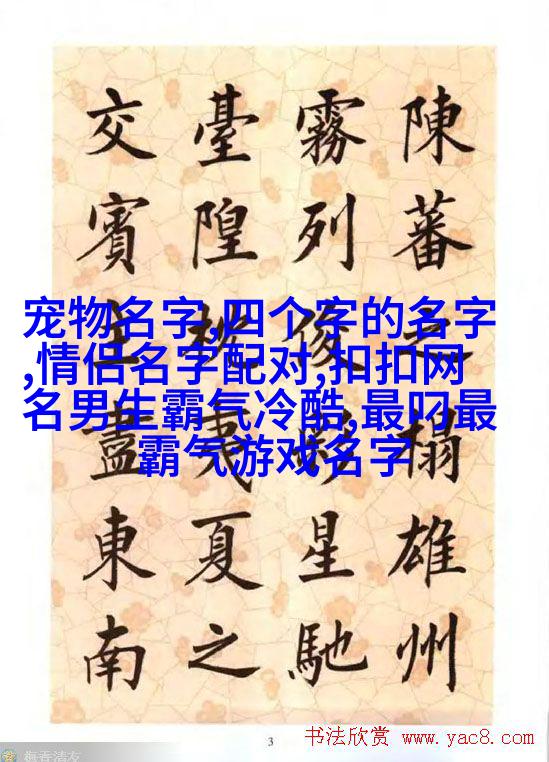 陳蕃之榻雄州
霧列俊彩星馳
臺隍枕夷夏之
交賓主盡東南
宠物名字,四个字的名字
,情侣名字配对,扣扣网
名男生霸气冷酷,最叼最
霸气游戏名字
3
书法欣赏 www.yac8.com